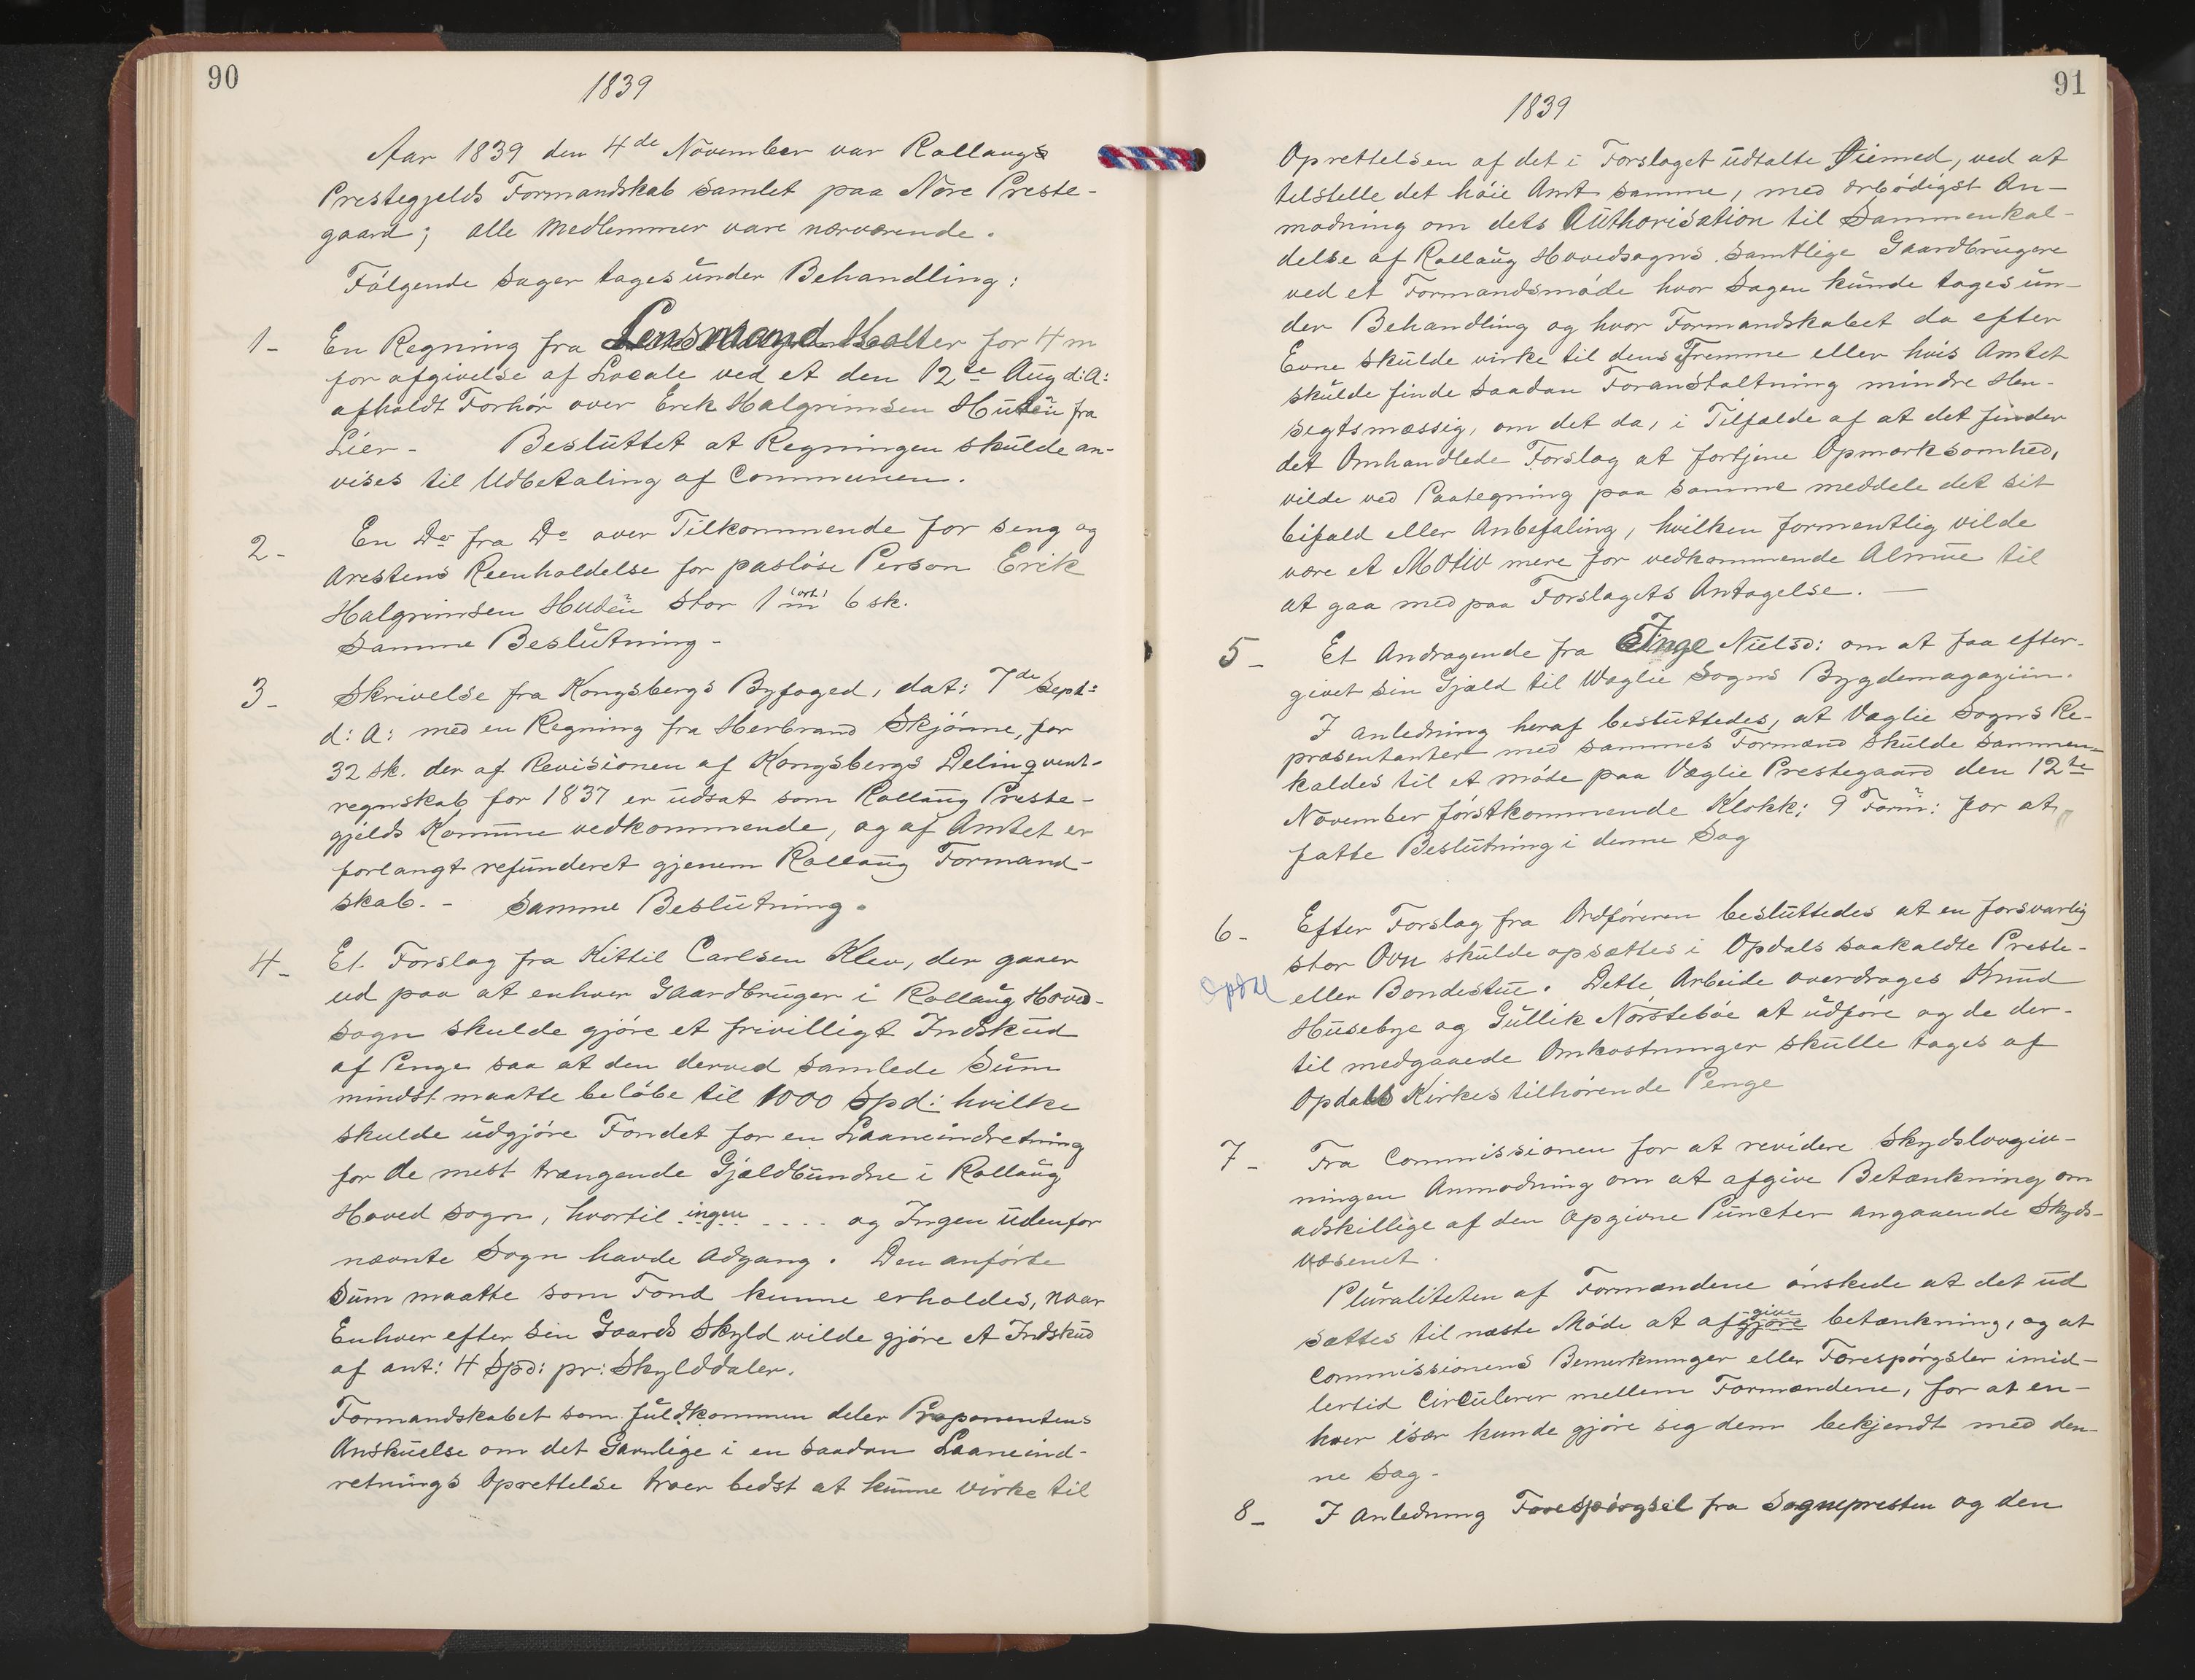 90
1839
Aar 1839 den 4de November var Rollaugs
Prestegjelds Formandskab samlet paa Nore Preste-
gaard; alle Medlemmer vare nærværende.
Følgende sager tages under Behandling:
1- En Regning fra Lensmand Halter for 4 m
for afgivelse af Locale ved et den 12te Aug d:A:
afholdt Forhør over Erik Halgrimsen fra
Lier - Besluttet at Regningen skulde an-
vises til Udbetaling af Communen.
2- En Do fra Do over Tilkommende for seng og
Arestens Reenholdelse for pasløse Person Erik
Halgrimsen stor 1 m (ort) 6 sk.
Samme Beslutning -
3- Skrivelse fra Kongsbergs Byfoged, dat: 7de Sept:
d: A: med en Regning fra Herbrand Skjönne, for
32 sk. der af Revisionen af Kongsbergs Delinqvent-
regnskab for 1837 er udsat som Rollaug Preste-
gjelds Komune vedkommende, og af Amtet er
forlangt refunderet gjenem Rollaug Formand-
skab. - Samme Beslutning.
4- Et Forslag fra Kittil Carlsen Klev, der gaaer
ud paa at enhver Gaardbruger i Rollaug Hoved-
sogn skulde gjöre et frivilligt Indskud
af Penge saa at den derved samlede Sum
mindst maatte belöbe til 1000 Spd: hvilke
skulde udgjöre Fondet for en Laaneindretning
for de mest trængende Gjældbundne i Rollaug
Hoved sogn, hvortil ingen .... og Ingen udenfor
nævnte Sogn havde Adgang. Den anförte
Sum maatte som Fond kunne erholdes, naar
Enhver efter sin Gaards Skyld vilde gjöre et Indskud
af ant: 4 Spd: pr: Skylddaler.
Formandskabet som fuldkommen deler Proponentens
Anskuelse om det Gavnlige i en saadan Laaneind-
retnings Oprettelse troer bedst at kunne virke til
91
1839
Oprettelsen af det i Forslaget udtalte Øiemed, ved at
tilstelle det höie Amt samme, med ærbödigst An-
modning om dets Authorisation til Sammenkal-
delse af Rollaug Hovedsogns samtlige Gaardbrugere
ved et Formandsmöde hvor Sagen kunde tages un-
der Behandling og hvor Formandskabet da efter
Evne skulde virke til dens Fremme eller hvis Amtet
skulde finde saadan Foranstaltning mindre Hen-
sigtsmæssig, om det da, i Tilfælde af at det finder
det Omhandlede Forslag at fortjene Opmærksomhed,
vilde ved Paategning paa samme meddele det sit
bifald eller Anbefaling, hvilken formentlig vilde
være et Motiv mere for vedkommende Almue til
at gaa med paa Forslagets Antagelse. —
5- Et Andragende fra Inge Nielsd: om at faa efter-
givet sin Gjæld til Væglie Sogns Bygdemagaziin.
I Anledning heraf besluttedes, at Væglie Sogns Re-
præsentanter med sammes Formænd skulde sammen-
kaldes til et möde paa Væglie Prestegaard den 12te
November förstkommende Klokk: 9 Form: for at
fatte Beslutning i denne Sag
6- Efter Forslag fra Ordföreren besluttedes at en forsvarlig
stor Ovn skulde opsættes i Opdals saakaldte Preste-
Opdal
eller Bondestue. Dette Arbeide overdrages Knud
Husebye og Gullik Nörstebøe at udföre og de der-
til medgaaede Omkostninger skulle tages af
Opdals Kirkes tilhörende Penge
7- Fra Commissionen for at revidere Skydslovgiv-
ningen Anmodning om at afgive Betænkning om
adskillige af den Opgivne Puncter angaaende Skyds-
væsenet.
Pluraliteten af Formændene önskede at det ud
sættes til næste Möde at afgjöre -give betænkning, og at
Commissionens Bemerkninger eller Forespörgsler imid-
lertid Circulerer mellem Formændene, for at en-
hver især kunde gjöre sig dem bekjendt med den-
ne Sag.
8- I Anledning Forespörgsel fra Sognepresten og den